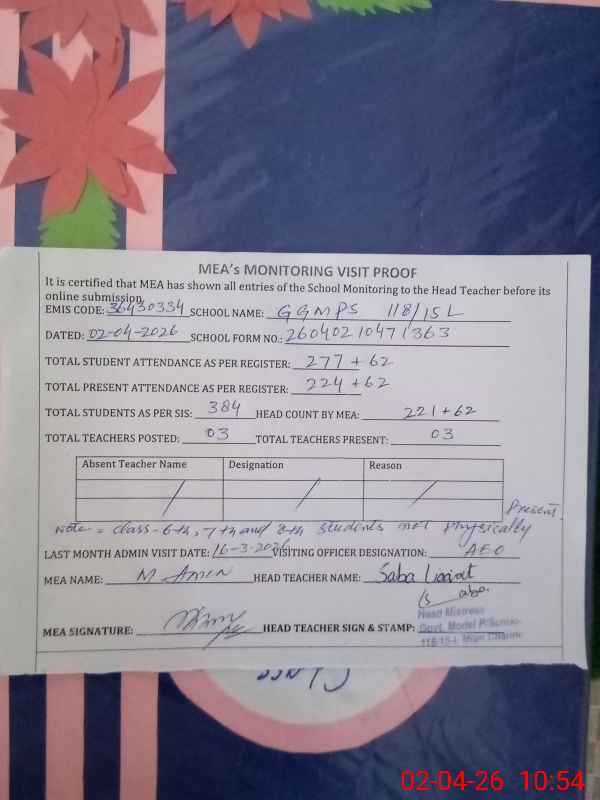 MEA's MONITORING VISIT PROOF
It is certified that MEA has shown all entries of the School Monitoring to the Head Teacher before its
online submission.
EMIS CODE: 36430334 SCHOOL NAME: GGMPS 118/15L
DATED: 02-04-2026 SCHOOL FORM NO.: 26040210471363
TOTAL STUDENT ATTENDANCE AS PER REGISTER: 277+62
TOTAL PRESENT ATTENDANCE AS PER REGISTER: 224+62
TOTAL STUDENTS AS PER SIS: 384 HEAD COUNT BY MEA: 221+62
TOTAL TEACHERS POSTED: 03 TOTAL TEACHERS PRESENT: 03
Absent Teacher Name Designation Reason
Present
Note = class-6th, 7th and 8th students not physically
LAST MONTH ADMIN VISIT DATE: 16-3-2026 VISITING OFFICER DESIGNATION: AEO
MEA NAME: M Amin HEAD TEACHER NAME: Saba
MEA SIGNATURE: HEAD TEACHER SIGN & STAMP:
Head Mistress
Govt. Model P/School
118/15-L Mian Channu
02-04-26 10:54